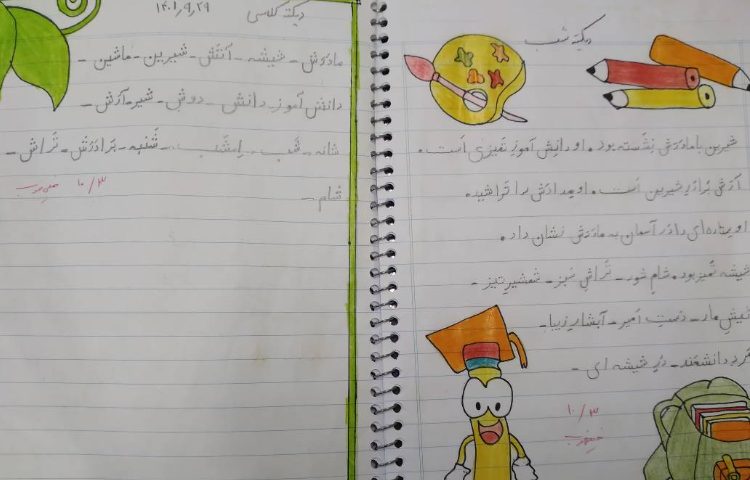 دیکته شب
شیرین با مادرش نشسته بود. او دانش آموز تمیزی است.
آرش برادر شیرین است. او مدادش را تراشید.
او ستاره ای را در آسمان به مادرش نشان داد.
شیشه تمیز بود. شامِ شور - تراشِ سبز - شمشیرِ تیز -
نیش مار - دستِ امیر - آبشارِ زیبا -
مردِ دانشمند - درِ شیشه ای -
۱۰/۳
دیکته کلاسی
۱۴۰۱٫۹٫۲۹
مادرش - شیشه - آتش - شیرین - ماشین -
دانش آموز - دانش - دوش - شیر - آرش -
شانه - شب - امشب - شنبه - برادرش - تراش -
شام -
۱۰/۳